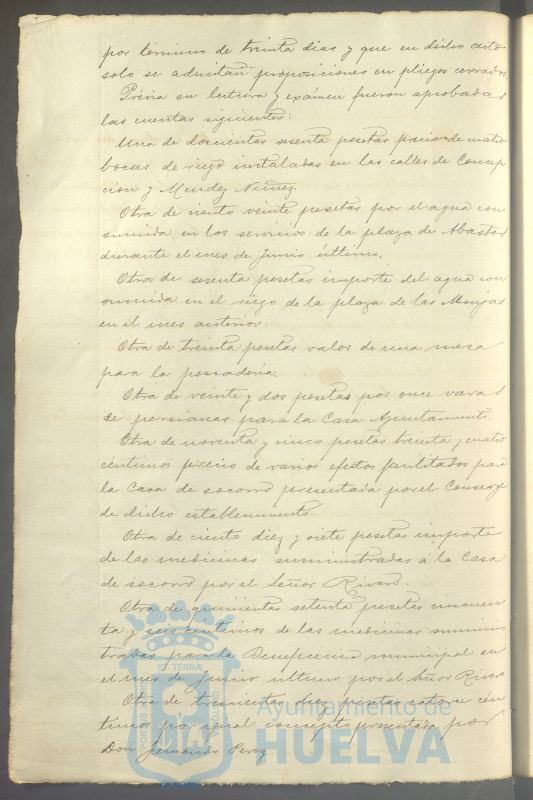 por término de treinta dias y que en dicho acto
solo se admitan proposiciones en pliegos cerrados.
Prévia su lectura y exámen fueron aprobadas
las cuentas siguientes:
Una de doscientas sesenta pesetas precio de cuatro
bocas de riego instaladas en las calles de Concep
cion y Mendez Nuñez.
Otra de ciento veinte pesetas por el agua con
sumida en los servicios de la plaza de Abastos
durante el mes de Junio último.
Otra de sesenta pesetas importe del agua con
sumida en el riego de la plaza de las Monjas
en el mes anterior.
Otra de treinta pesetas valor de una mesa
para la pescaderia.
Otra de veinte y dos pesetas por once varas
de persianas para la Casa Ayuntamiento.
Otra de noventa y cinco pesetas treinta y cuatro
céntimos precio de varios efectos facilitados para
la Casa de socorro presentada por el Conserge
de dicho establecimiento.
Otra de ciento diez y siete pesetas importe
de las medicinas suministradas á la Casa
de socorro por el Señor Rivero.
Otra de quinientas setenta pesetas cincuen
ta y seis céntimos de las medicinas suminis
tradas para la Beneficencia municipal en
el mes de Junio ultimo por el Señor Rivero
Otra de trescientas diez pesetas catorce cén
timos por igual concepto presentada por
Don Fernando Perez.
Ayuntamiento de
HUELVA